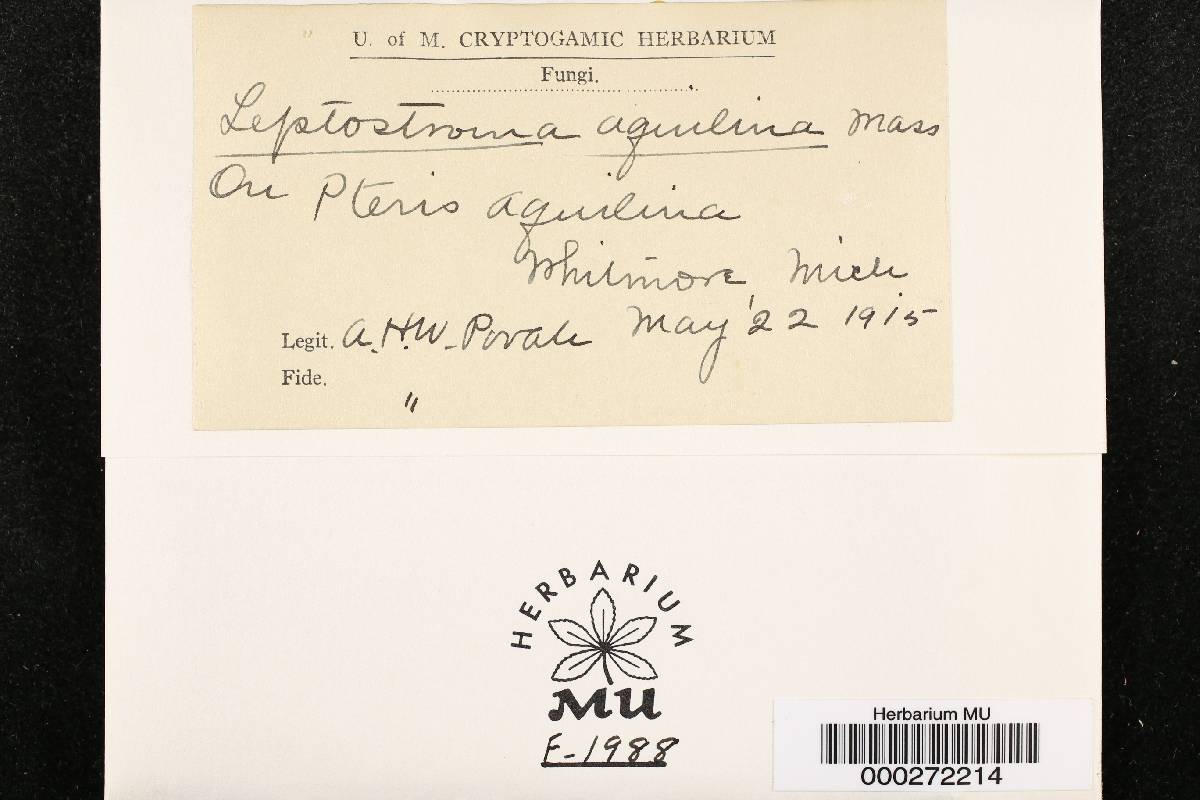 U. of M. CRYPTOGAMIC HERBARIUM
Fungi.
Leptostroma aquilina Mass
On Pteris aquilina
Whitmore, Mich
Legit. A.H.W. Povah May 22 1915
Fide. "
HERBARIUM
MU
F-1988
Herbarium MU
000272214